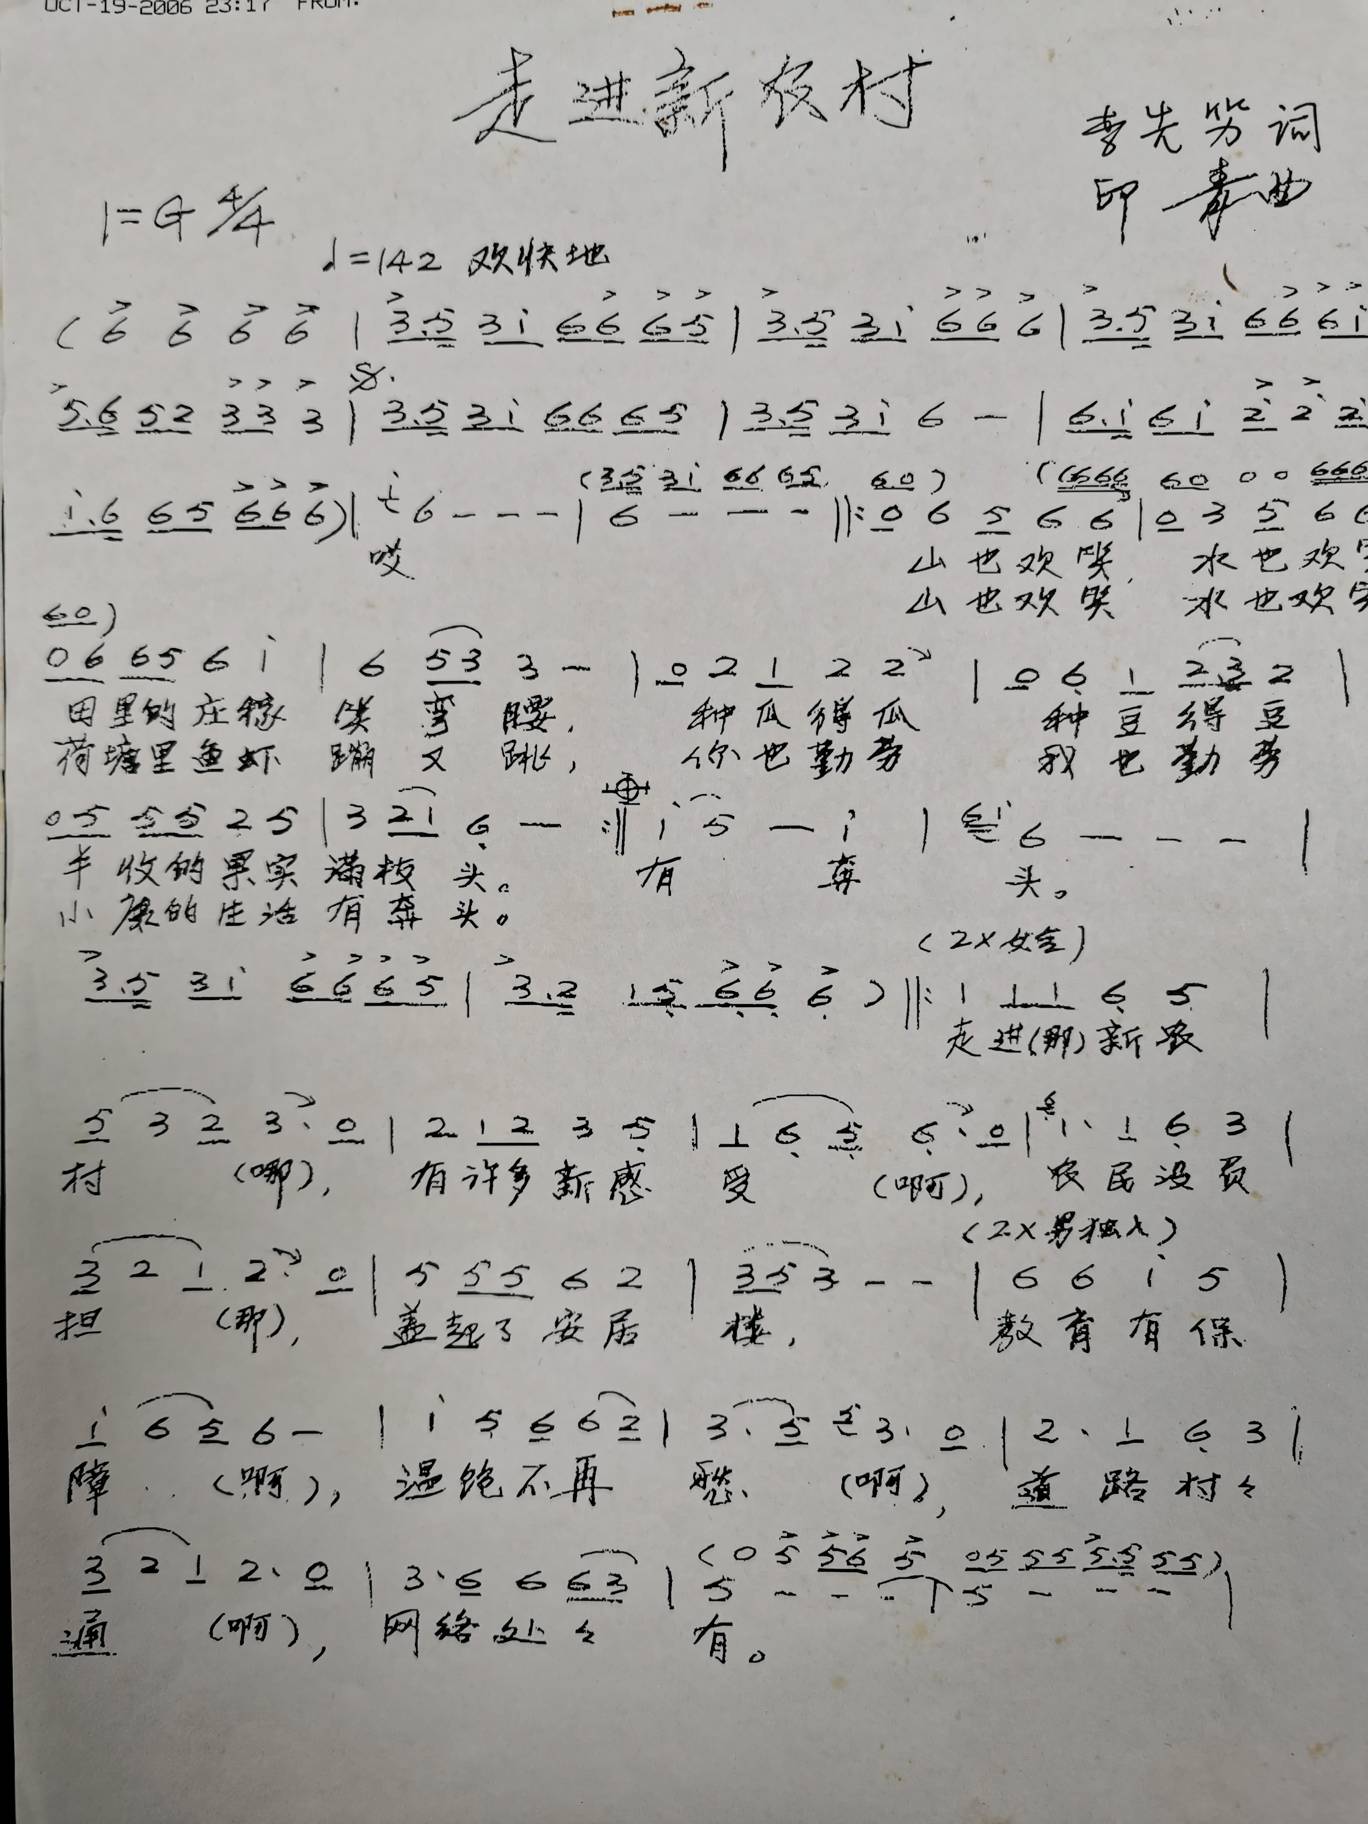 OCT-19-2006 23:17 FROM:
走进新农村
李先 词
印 青 曲
1=G 4/4
♩=142 欢快地
( 6 6 6 6 | 3.5 3i 66 65 | 3.5 3i 66 6 | 3.5 3i 66 6i
5.6 52 33 3 | 3.5 3i 66 65 | 3.5 3i 6 — | 6.i 6i 2 2 2
(3.5 3i 66 65 60) (666 60 00 666
i.6 65 66 6) | i 6 - - - | 6 - - - ‖: 0 6 5 6 6 | 0 3 5 6 6
哎 山也欢笑, 水也欢笑
山也欢笑 水也欢笑
60)
06 65 6 i | 6 53 3 — | 0 2 1 2 2 | 0 6 1 23 2 |
田里的庄稼 笑弯腰, 种瓜得瓜 种豆得豆
荷塘里鱼虾 蹦又跳, 你也勤劳 我也勤劳
05 55 2 5 | 3 2i 6 — :‖ i 5 — i | 6i 6 — — — |
丰收的果实 满枝头。 有 奔 头。
小康的生活 有奔头。
(2X女仝)
3.5 3i 66 65 | 3.2 15 66 6 ) ‖: 1 11 6 5 |
走进(那)新农
5 3 2 3. 0 | 2 12 3 5 | 1 6 5 6. 0 | 1. 1 6 3 |
村 (哪), 有许多新感 受 (啊), 农民没负
(2X男独人)
3 2 1 2. 0 | 5 55 6 2 | 35 3 - - | 6 6 i 5 |
担 (那), 盖起了安居 楼, 教育有保
i 6 5 6 — | i 5 6 6 2 | 3. 5 5 3. 0 | 2. 1 6 3 |
障 (啊), 温饱不再 愁 (啊), 道路村々
(0 5 56 5 05 55 5.5 55)
3 2 1 2. 0 | 3. 6 6 63 | 5 - - - | 5 - - - |
通 (啊), 网络处々 有。